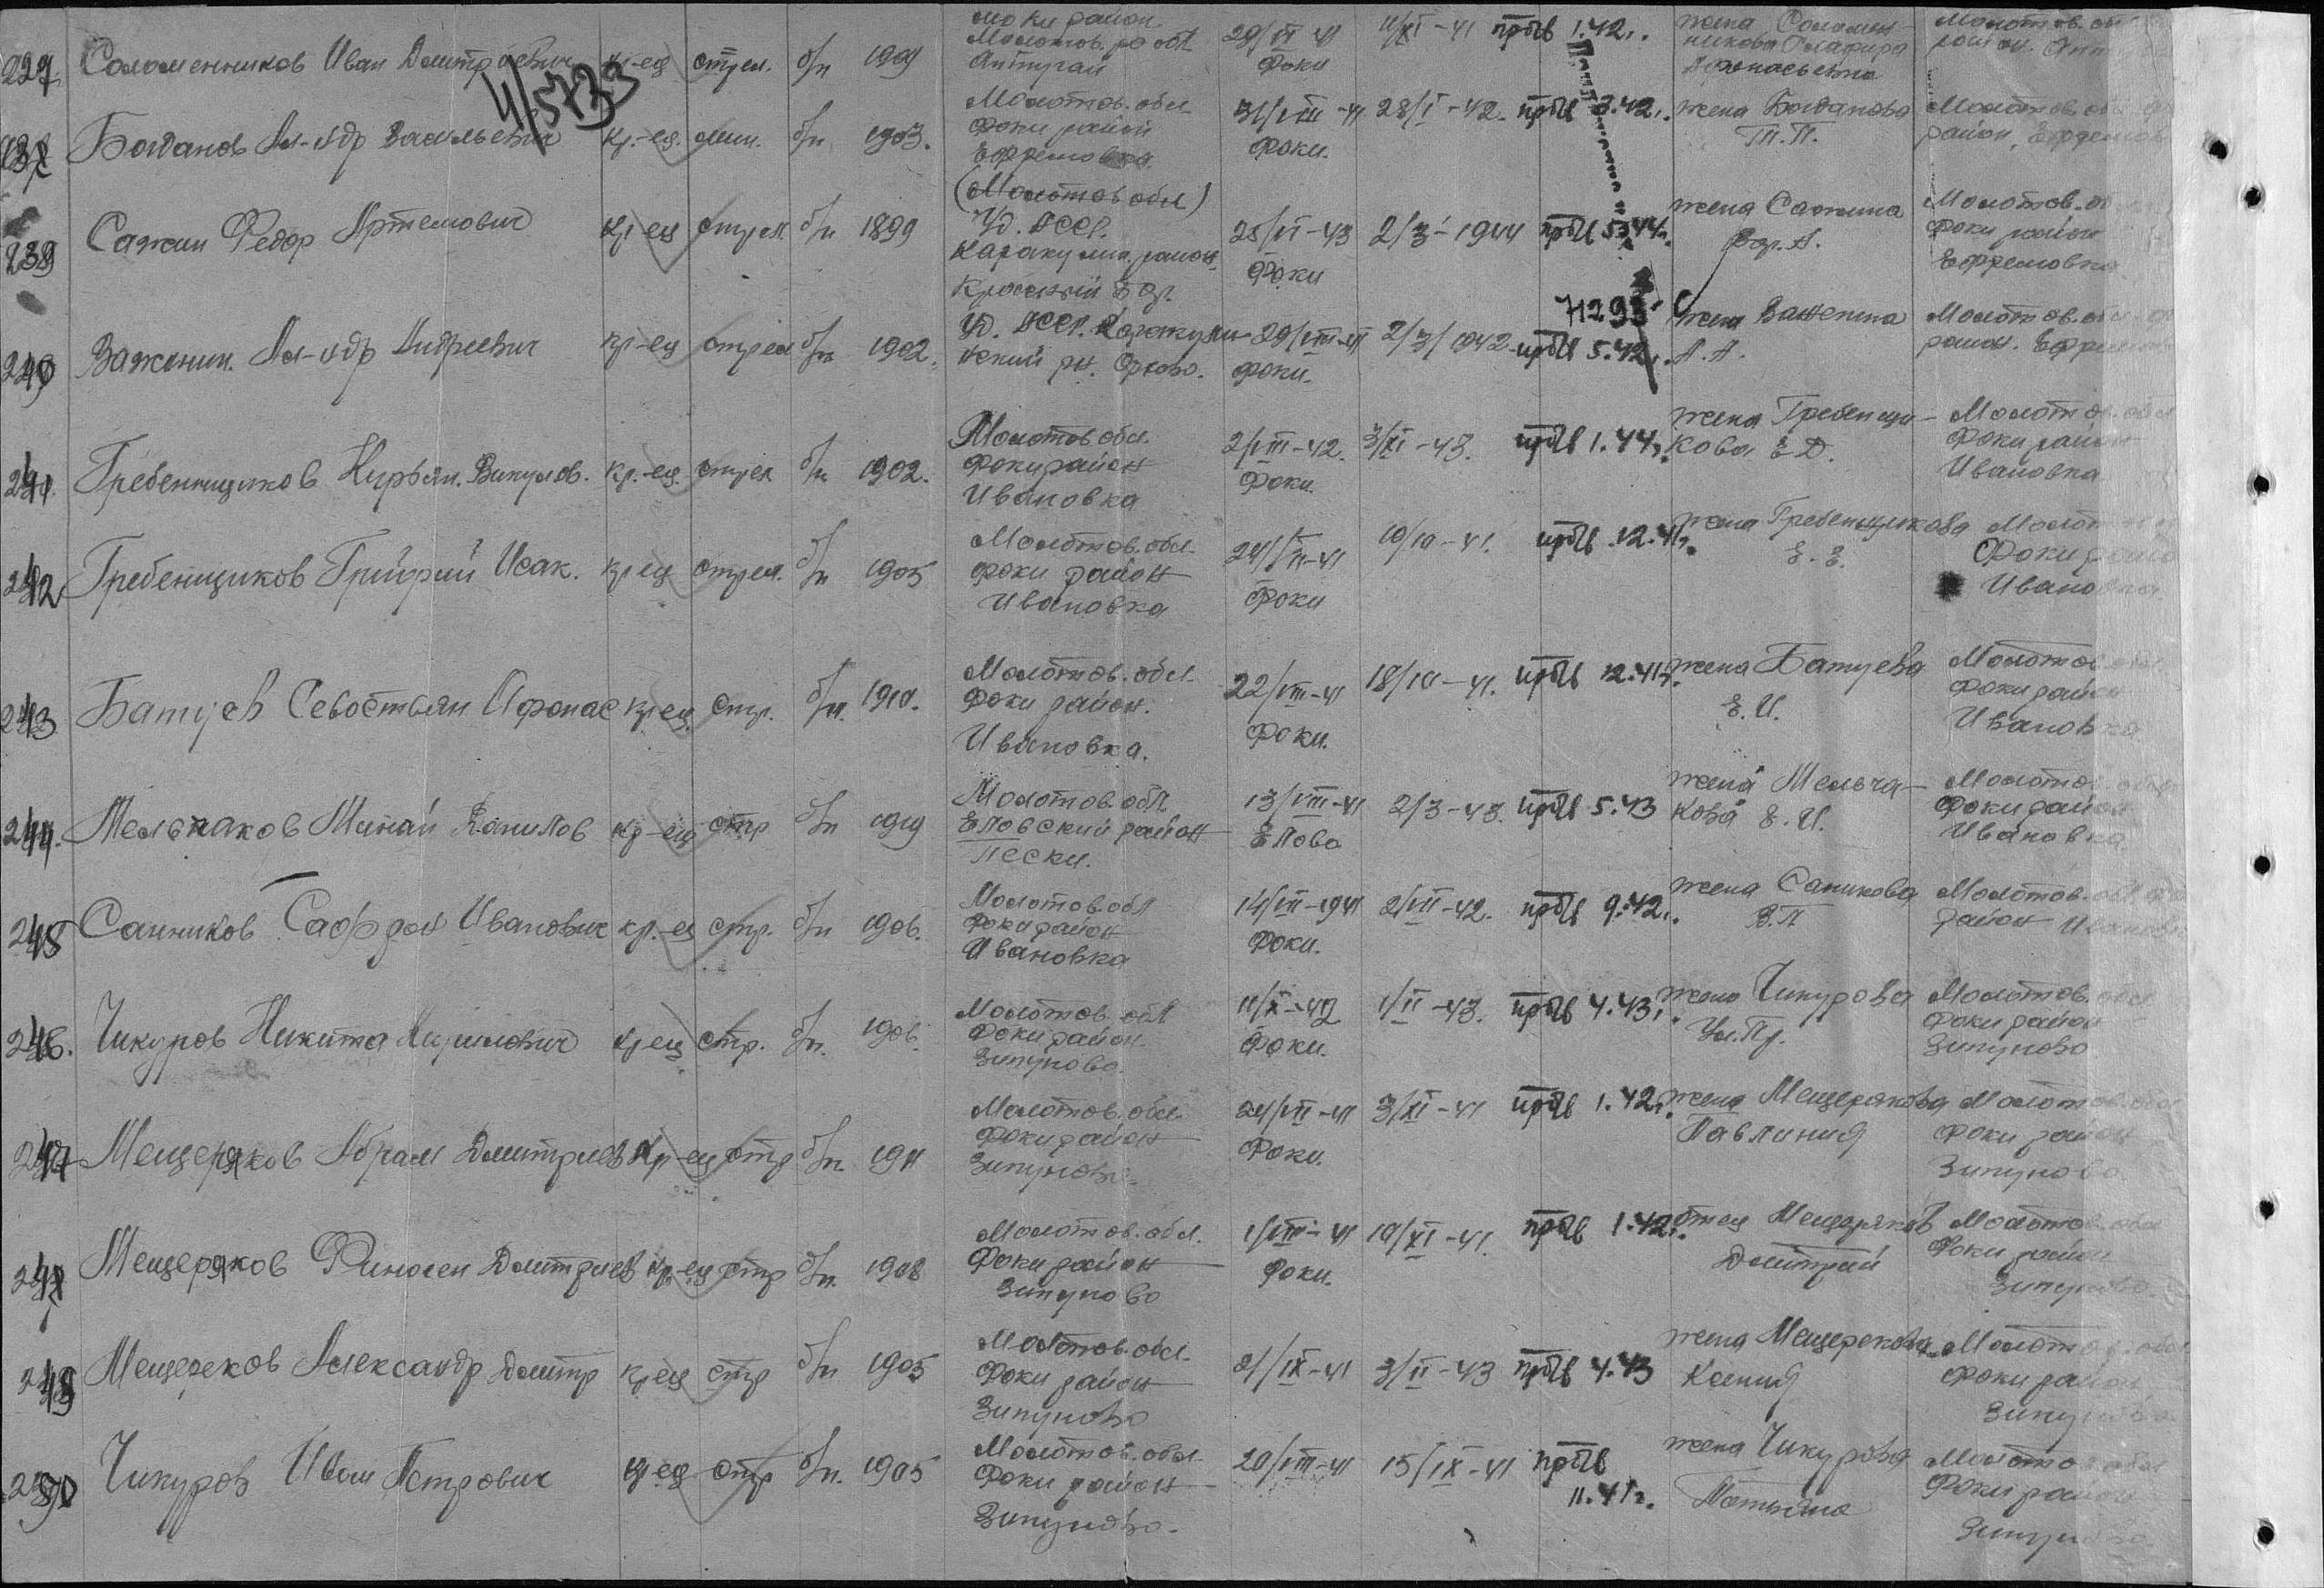 237 Соломенников Иван Дмитриевич кр-ец стрел. б/п 1909 Фоки район Молотов. обл Аптугай 29/VI 41 Фоки 11/XI-41 пр б/в 1.42г. жена Соломенникова Глафира Афонасьевна Молотов. обл
4/5733
238 Богданов Ал-ндр Васильевич кр.-ец. б/п 1903. Молотов. обл Фоки район Ефремовка. 31/VIII-41 Фоки. 28/I-42. пр б/в 3.42г. жена Богданова Т.П. Молотов. обл район, Ефремов
239 Сажин Федор Артемович кр ец стрел б/п 1899 (Молотов обл) Уд. АССР. Каракулин. район. Красный Бор. 25/VI-43 Фоки 2/3-1944 пр б/в 5.44г. жена Сажина Молотов. об Фоки район Ефремовка
71293
240 Важенин. Ал-ндр Андреевич кр-ец стрел б/п 1902. Уд. АССР. Каракулинский рн. Орлово. 29/VIII-41 Фоки. 2/3/1942 пр б/в 5.42г. жена Важенина А.А. Молотов. обл район. Ефрем
241. Гребенщиков Кирьян. Викулов. кр.-ец. стрел б/п 1902. Молотов обл. Фоки район Ивановка 2/VIII-42. Фоки. 3/XI-43. пр б/в 1.44г. жена Гребенщикова Е Д. Молотов. обл Фоки район Ивановка
242 Гребенщиков Григорий Исак. кр ец стрел. б/п 1905 Молотов. обл. Фоки район Ивановка 24/VII-41 Фоки 10/10-41. пр б/в 12.41г. жена Гребенщикова Е.Е. Молот Фоки район Ивановка.
243 Батуев Севостьян Афонас кр ец. стр. б/п. 1910. Молотов. обл. Фоки район. Ивановка. 22/VIII-41 Фоки. 18/10-41. пр б/в 12.41г. жена Батуева Е.И. Молотов Фоки район Ивановка
244. Мельчаков Минай Данилов кр-ец стр б/п 1919 Молотов. обл. Еловский район Пески. 13/VIII-41 Елово 2/3-43. пр б/в 5.43 жена Мельчакова Е.И. Молотов обл Фоки район Ивановка
245 Санников Сафрон Иванович кр.-ец стр. б/п 1906. Молотов. обл Фоки район Ивановка 14/VII-1941 Фоки. 2/VII-42. пр б/в 9.42г. жена Саникова В.П Молотов. обл район Ивановка
246. Чикуров Никита Кирилович кр ец стр. б/п. 1906. Молотов. обл Фоки район. Зипуново. 11/X-42 Фоки. 1/II-43. пр б/в 4.43г. жена Чикурова Ул. Пр. Молотов. обл Фоки район Зипуново
247 Мещеряков Абрам Дмитриев кр-ец стр б/п. 1911 Молотов. обл. Фоки район Зипуново. 24/VII-41 Фоки. 3/XI-41 пр б/в 1.42г. жена Мещерякова Павлиния Молотов. обл Фоки район Зипуново
248 Мещеряков Финоген Дмитриев кр-ец стр б/п. 1908 Молотов. обл. Фоки район Зипуново 1/VIII-41 Фоки. 19/XI-41. пр б/в 1.42г. отец Мещеряков Дмитрий Молотов. обл Фоки район Зипуново.
249 Мещереков Александр Дмитр кр ец стр б/п 1905 Молотов. обл. Фоки район Зипуново 21/IX-41 3/II-43 пр б/в 4.43 жена Мещерекова Ксения Молотов. обл Фоки район Зипуново
250 Чикуров Иван Петрович кр-ец стр б/п. 1905 Молотов. обл. Фоки район Зипуново. 20/VIII-41 15/IX-41 пр б/в 11.41г. жена Чикурова Татьяна Молотов обл Фоки район Зипуново